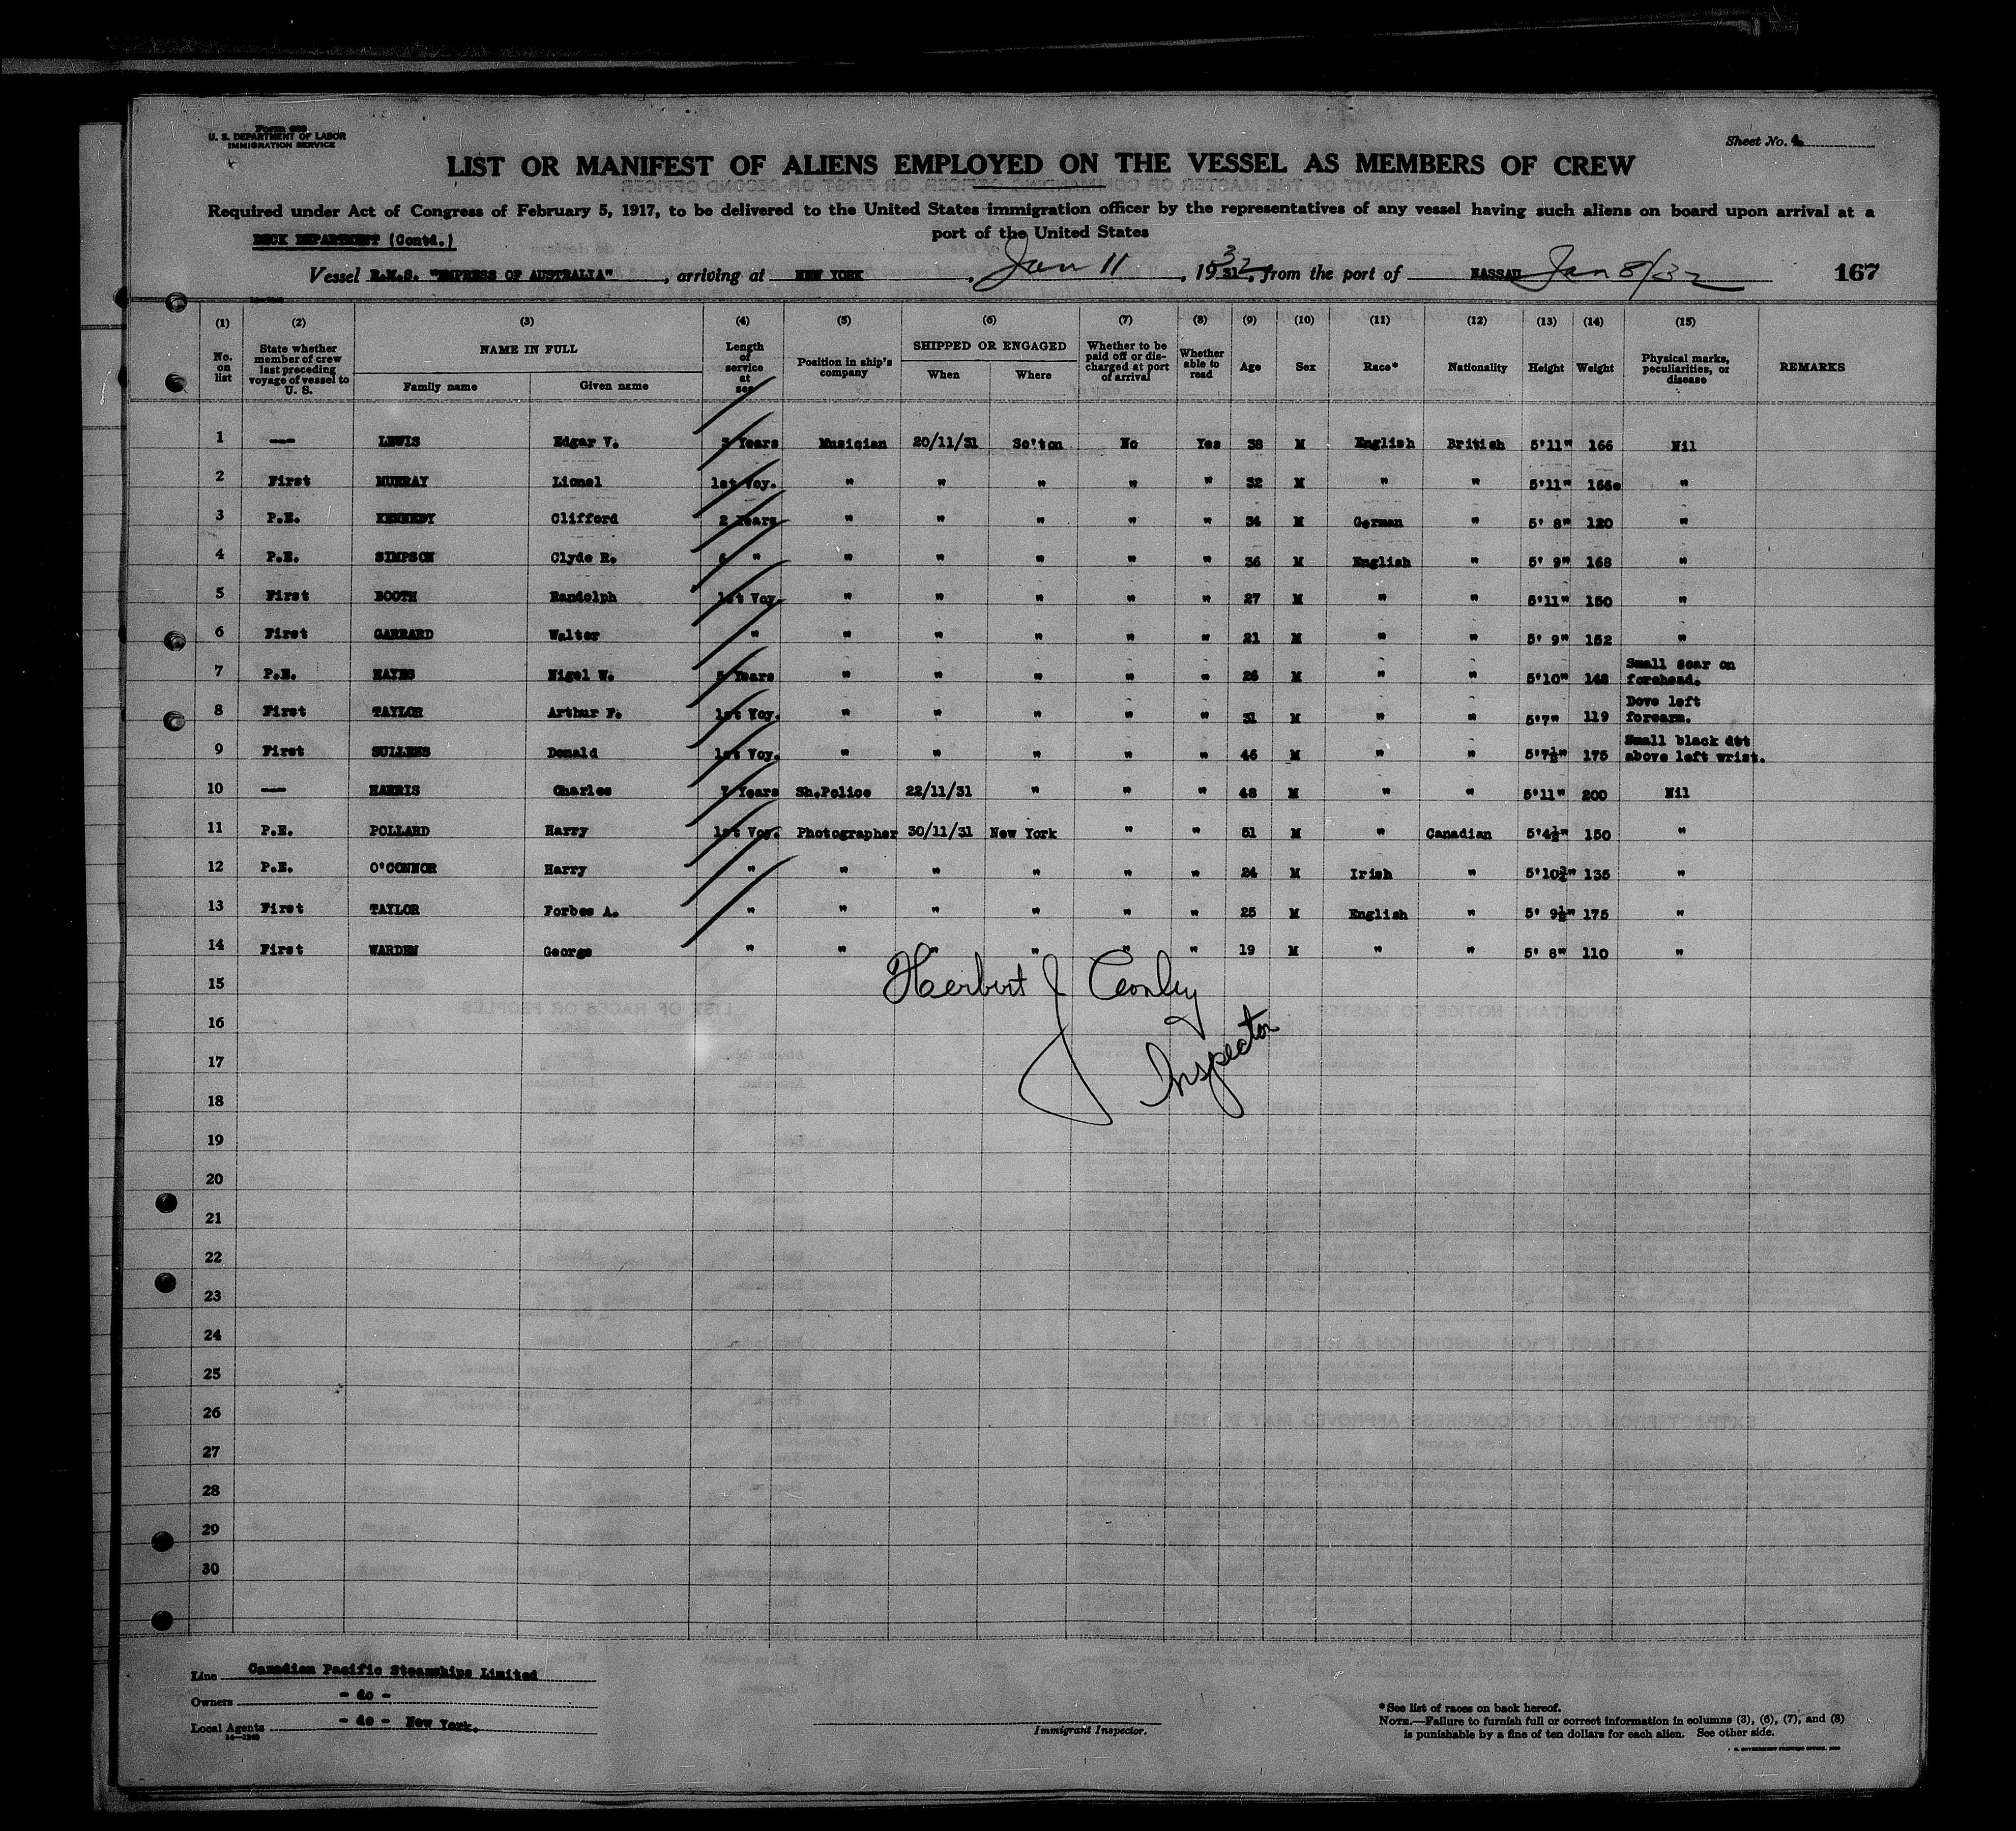 U. S. DEPARTMENT OF LABOR
IMMIGRATION SERVICE
Sheet No.
LIST OR MANIFEST OF ALIENS EMPLOYED ON THE VESSEL AS MEMBERS OF CREW
Required under Act of Congress of February 5, 1917, to be delivered to the United States immigration officer by the representatives of any vessel having such aliens on board upon arrival at a
port of the United States
DECK DEPARTMENT (Contd.)
Vessel R.M.S. "EMPRESS OF AUSTRALIA", arriving at NEW YORK, Jan 11, 1932, from the port of NASSAU Jan 8/32 167
(1) (2) (3) (4) (5) (6) (7) (8) (9) (10) (11) (12) (13) (14) (15)
No. on list State whether member of crew last preceding voyage of vessel to U. S. NAME IN FULL Family name Given name Length of service at sea Position in ship's company SHIPPED OR ENGAGED When Where Whether to be paid off or discharged at port of arrival Whether able to read Age Sex Race* Nationality Height Weight Physical marks, peculiarities, or disease REMARKS
1 — LEWIS Edgar V. Years Musician 20/11/31 So'ton No Yes 38 M English British 5'11" 166 Nil
2 First MURRAY Lionel 1st Voy. " " " " " 32 M " " 5'11" 166 "
3 P.E. KENNEDY Clifford 2 Years " " " " " 34 M German " 5' 8" 120 "
4 P.E. SIMPSON Clyde R. 6 " " " " " " 36 M English " 5' 9" 168 "
5 First BOOTH Randolph 1st Voy. " " " " " 27 M " " 5'11" 150 "
6 First GARRARD Walter " " " " " " 21 M " " 5' 9" 152 "
7 P.E. HAYES Nigel W. 5 Years " " " " " 26 M " " 5'10" 148 Small scar on forehead.
8 First TAYLOR Arthur F. 1st Voy. " " " " " 31 M " " 5'7" 119 Dove left forearm.
9 First SULLENS Donald 1st Voy. " " " " " 46 M " " 5'7½" 175 Small black dot above left wrist.
10 — HARRIS Charles 7 Years Sh.Police 22/11/31 " " " 48 M " " 5'11" 200 Nil
11 P.E. POLLARD Harry 1st Voy. Photographer 30/11/31 New York " " 51 M " Canadian 5'4½" 150 "
12 P.E. O'CONNOR Harry " " " " " " 24 M Irish " 5'10¾" 135 "
13 First TAYLOR Forbes A. " " " " " " 25 M English " 5' 9½" 175 "
14 First WARDEN George " " " " " " 19 M " " 5' 8" 110 "
15
Herbert J Conley
16
Inspector
17
18
19
20
21
22
23
24
25
26
27
28
29
30
Line Canadian Pacific Steamships Limited
Owners - do -
Local Agents - do - New York.
Immigrant Inspector.
*See list of races on back hereof.
NOTE.—Failure to furnish full or correct information in columns (3), (6), (7), and (8)
is punishable by a fine of ten dollars for each alien. See other side.